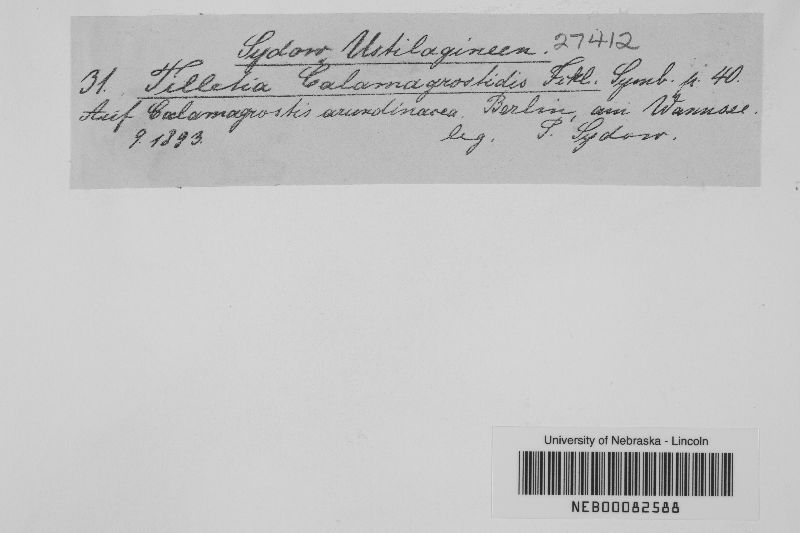 Sydow, Ustilagineen. 27412
31. Tilletia Calamagrostidis Fckl. Symb. p. 40.
Auf Calamagrostis arundinacea. Berlin, am Wannsee.
9. 1893. leg. P. Sydow.
University of Nebraska - Lincoln
NEB00082588